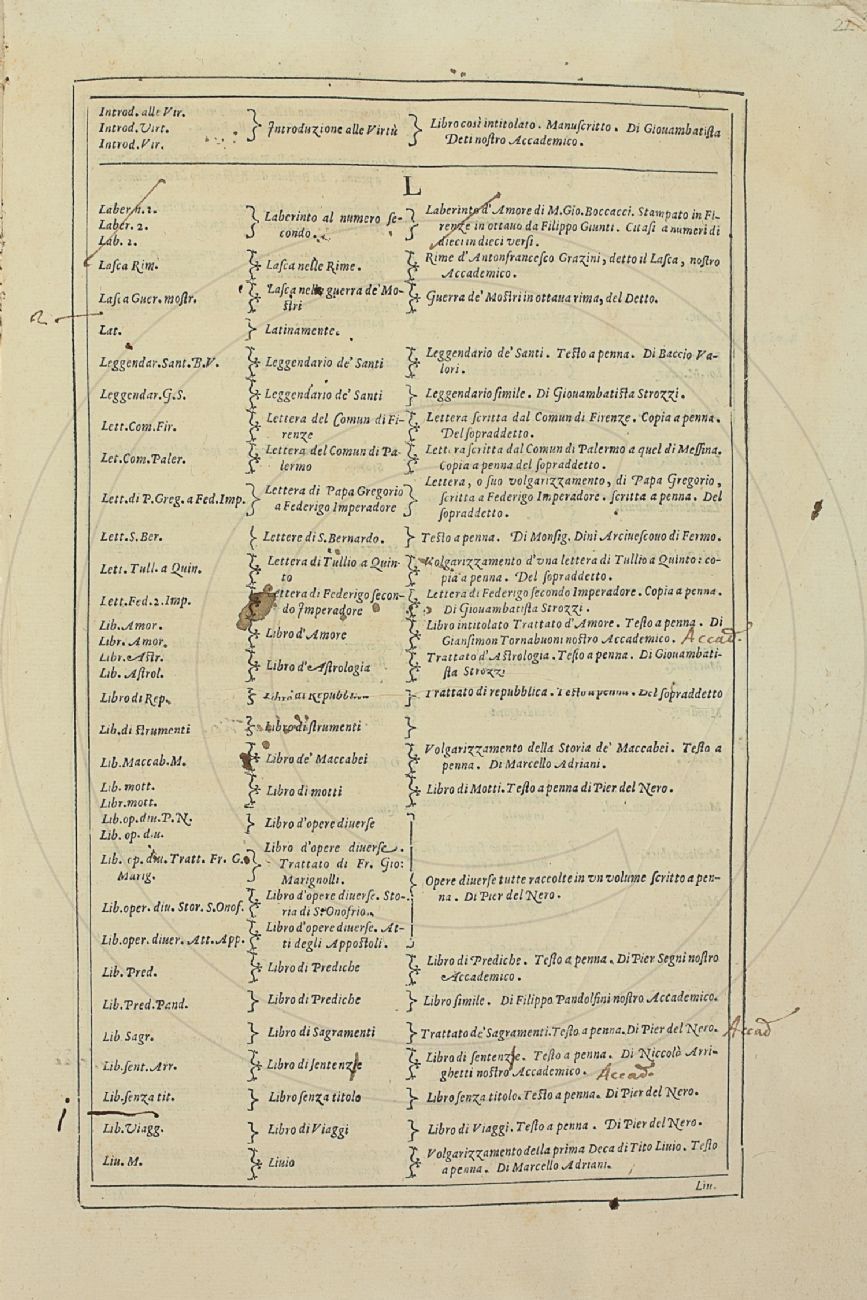 22
Introd. alle Vir.
Introd. Virt.
Introd. Vir.
Introduzione alle Virtù
Libro così intitolato. Manuſcritto. Di Giouambatiſta
Deti noſtro Accademico.
L
Laber. n. 2.
Laber. 2.
Lab. 2.
Laberinto al numero ſe-
condo.
Laberinto d'Amore di M. Gio. Boccacci. Stampato in Fi-
renze in ottauo da Filippo Giunti. Citaſi a numeri di
dieci in dieci verſi.
Laſca Rim.
Laſca nelle Rime.
Rime d'Antonfranceſco Grazini, detto il Laſca, noſtro
Accademico.
Laſca Guer. moſtr.
Laſca nella guerra de' Mo-
ſtri
Guerra de' Moſtri in ottaua rima, del Detto.
Lat.
Latinamente.
Leggendar. Sant. B. V.
Leggendario de' Santi
Leggendario de' Santi. Teſto a penna. Di Baccio Va-
lori.
Leggendar. G. S.
Leggendario de' Santi
Leggendario ſimile. Di Giouambatiſta Strozzi.
Lett. Com. Fir.
Lettera del Comun di Fi-
renze
Lettera ſcritta dal Comun di Firenze. Copia a penna.
Del ſopraddetto.
Let. Com. Paler.
Lettera del Comun di Pa-
lermo
Lettera ſcritta dal Comun di Palermo a quel di Meſſina.
Copia a penna del ſopraddetto.
Lett. di P. Greg. a Fed. Imp.
Lettera di Papa Gregorio
a Federigo Imperadore
Lettera, o ſuo volgarizzamento, di Papa Gregorio,
ſcritta a Federigo Imperadore. ſcritta a penna. Del
ſopraddetto.
Lett. S. Ber.
Lettere di S. Bernardo.
Teſto a penna. Di Monſig. Dini Arciueſcouo di Fermo.
Lett. Tull. a Quin.
Lettera di Tullio a Quin-
to
Volgarizzamento d'vna lettera di Tullio a Quinto: co-
pia a penna. Del ſopraddetto.
Lett. Fed. 2. Imp.
Lettera di Federigo ſecon-
do Imperadore
Lettera di Federigo ſecondo Imperadore. Copia a penna.
Di Giouambatiſta Strozzi.
Lib. Amor.
Libr. Amor.
Libro d'Amore
Libro intitolato Trattato d'Amore. Teſto a penna. Di
Gianſimon Tornabuoni noſtro Accademico. Accad.
Libr. Aſtr.
Lib. Aſtrol.
Libro d'Aſtrologia
Trattato d'Aſtrologia. Teſto a penna. Di Giouambati-
ſta Strozzi
Libro di Rep.
Libro di Repubblica
Trattato di repubblica. Teſto a penna. Del ſopraddetto
Lib. di ſtrumenti
Libro di ſtrumenti
Lib. Maccab. M.
Libro de' Maccabei
Volgarizzamento della Storia de' Maccabei. Teſto a
penna. Di Marcello Adriani.
Lib. mott.
Libr. mott.
Libro di motti
Libro di Motti. Teſto a penna di Pier del Nero.
Lib. op. diu. P. N.
Lib. op. diu.
Libro d'opere diuerſe
Lib. op. diu. Tratt. Fr. G.
Marig.
Libro d'opere diuerſe.
Trattato di Fr. Gio:
Marignolli.
Opere diuerſe tutte raccolte in vn volume ſcritto a pen-
na. Di Pier del Nero.
Lib. oper. diu. Stor. S. Onof.
Libro d'opere diuerſe. Sto-
ria di S. Onofrio.
Lib. oper. diuer. Att. App.
Libro d'opere diuerſe. At-
ti degli Appoſtoli.
Lib. Pred.
Libro di Prediche
Libro di Prediche. Teſto a penna. Di Pier Segni noſtro
Accademico.
Lib. Pred. Pand.
Libro di Prediche
Libro ſimile. Di Filippo Pandolfini noſtro Accademico.
Lib Sagr.
Libro di Sagramenti
Trattato de' Sagramenti. Teſto a penna. Di Pier del Nero. Accad
Lib. ſent. Arr.
Libro di ſentenzie
Libro di ſentenzie. Teſto a penna. Di Niccolò Arri-
ghetti noſtro Accademico. Accad.
Lib. ſenza tit.
Libro ſenza titolo
Libro ſenza titolo. Teſto a penna. Di Pier del Nero.
Lib. Viagg.
Libro di Viaggi
Libro di Viaggi. Teſto a penna. Di Pier del Nero.
Liu. M.
Liuio
Volgarizzamento della prima Deca di Tito Liuio. Teſto
a penna. Di Marcello Adriani.
Liu.